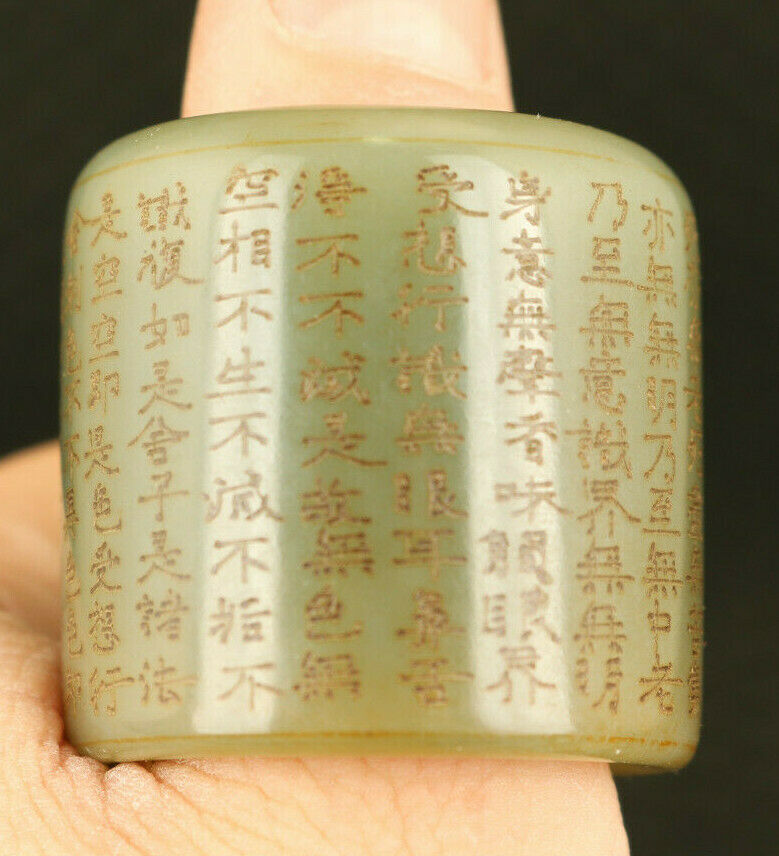 是空空即是色受想行
識復如是舍子是諸法
空相不生不減不垢不
淨不不減是故無色無
受想行識無眼耳鼻舌
身意無聲香味觸眼界
乃呈無意識界無無明
亦無無明乃至無中老